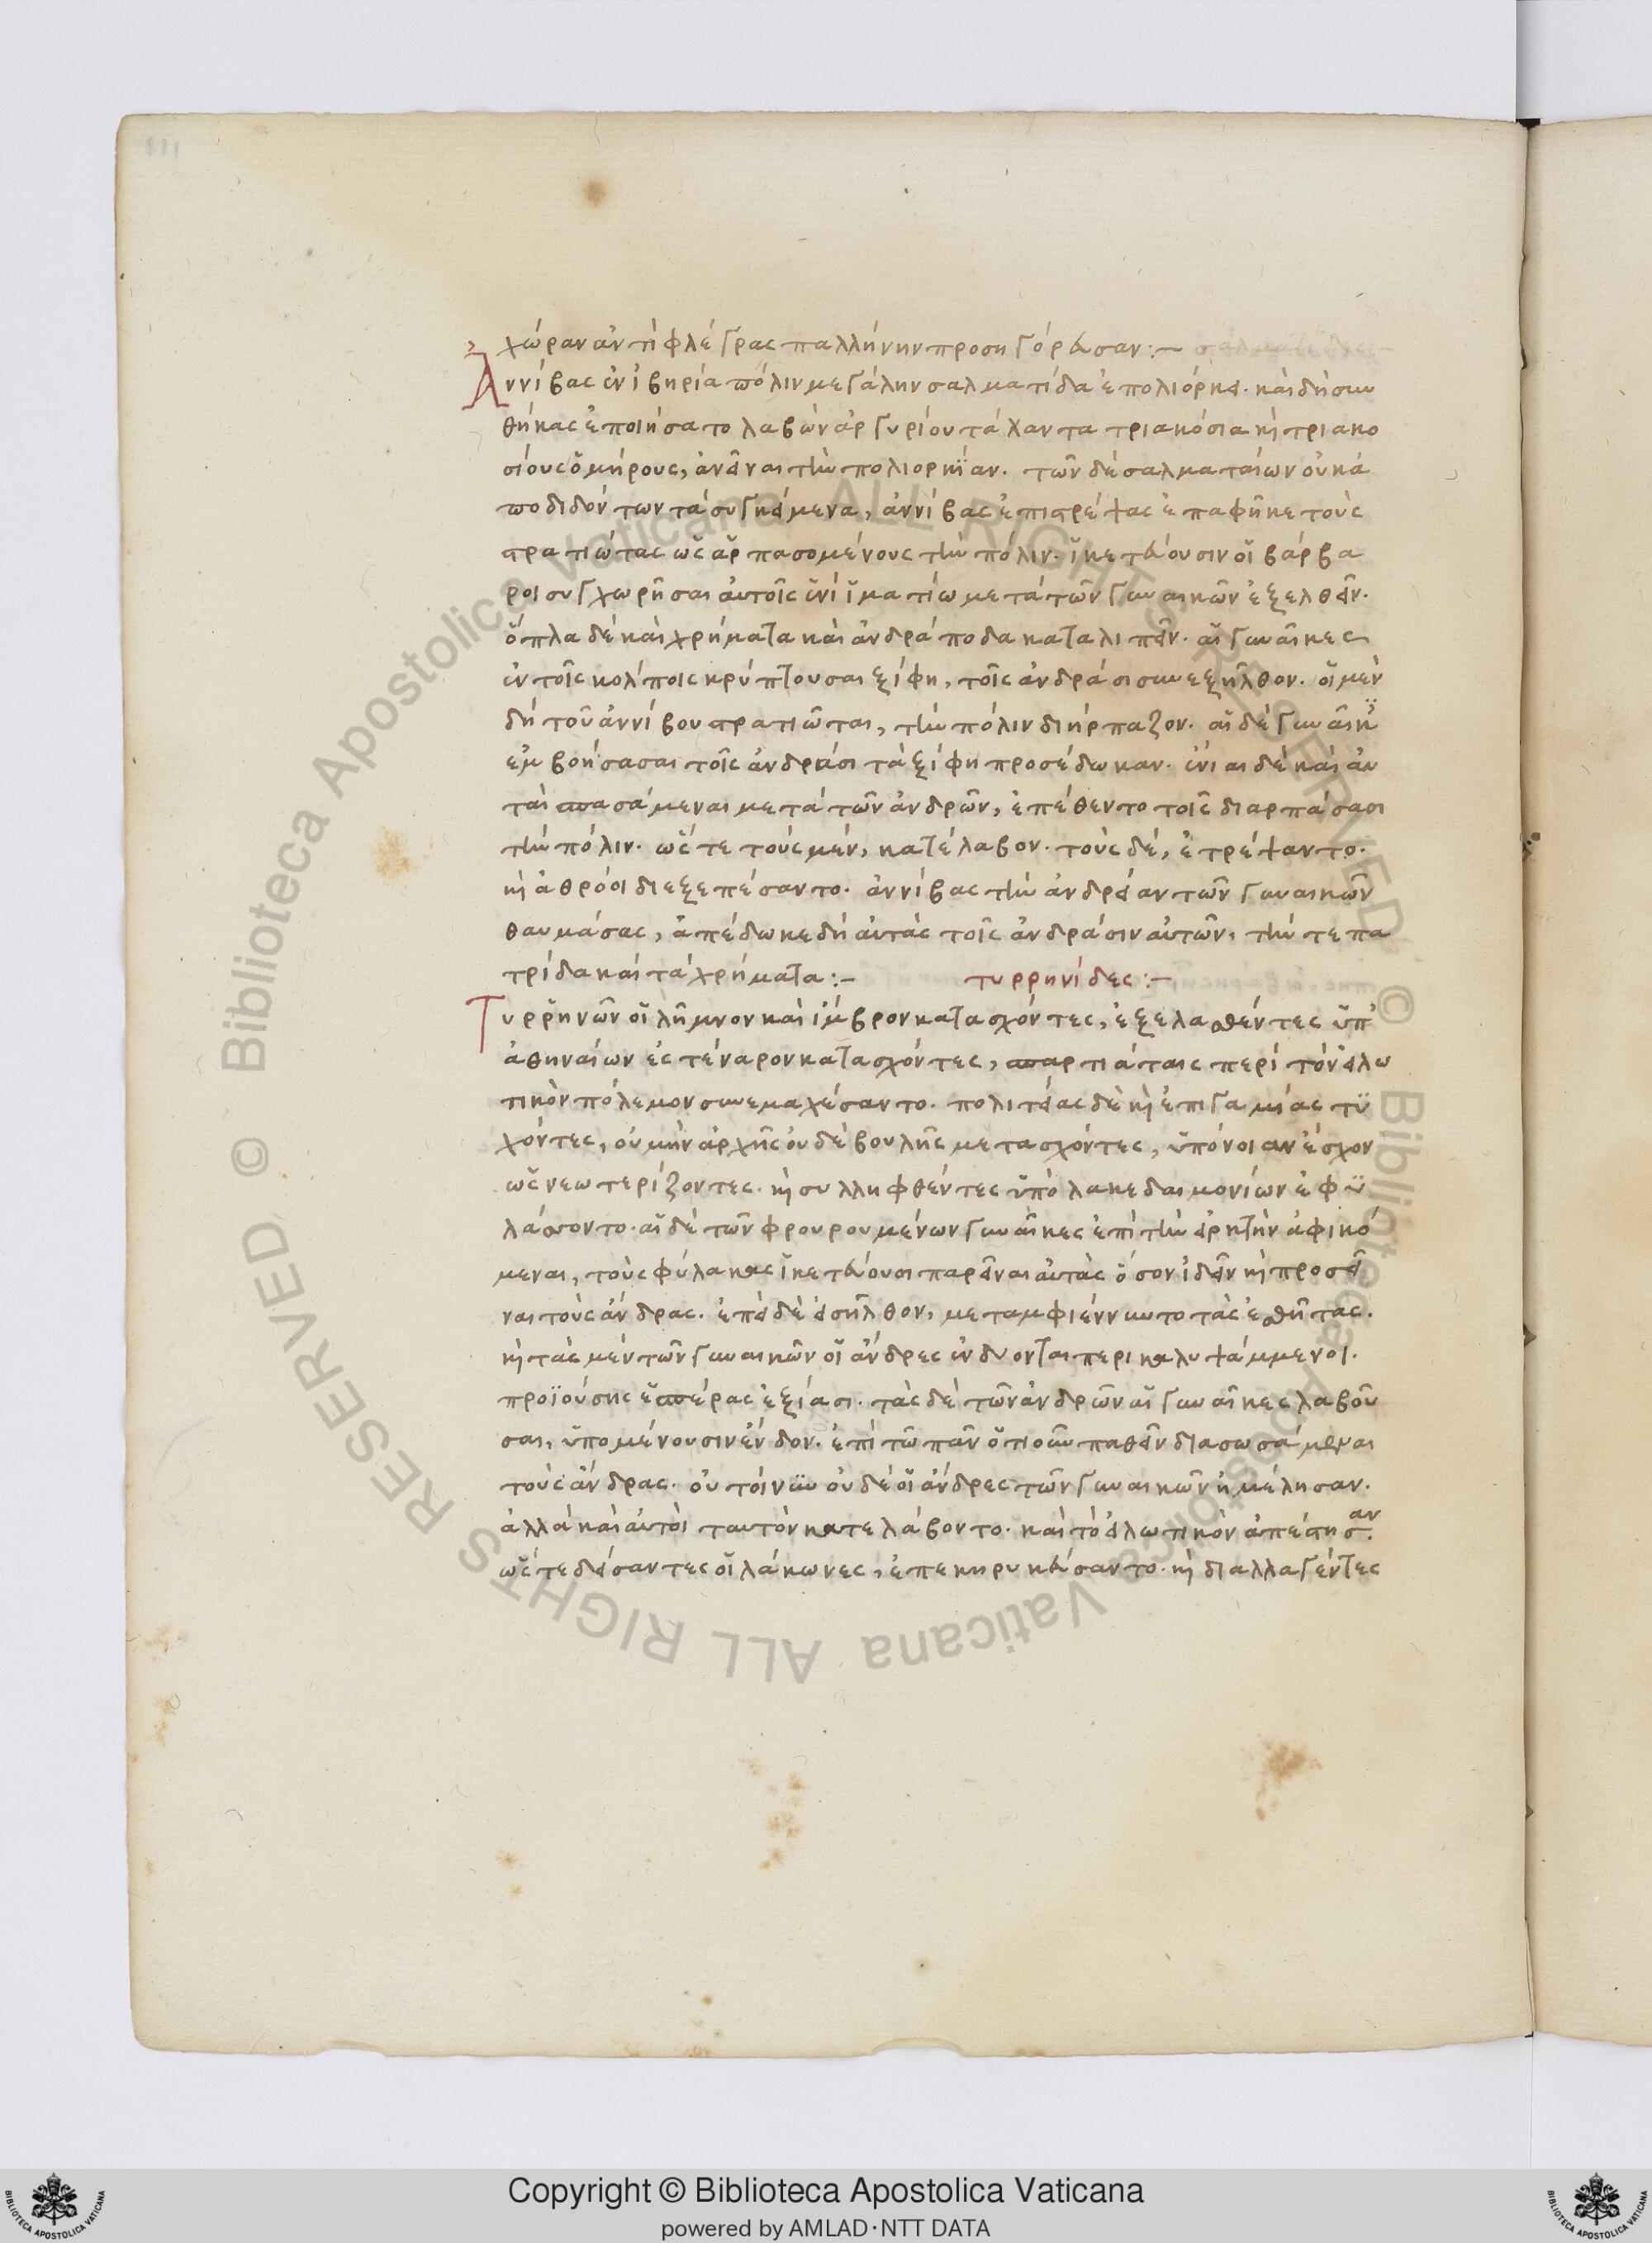 χώραν ἀντὶ φλέγρας παλλήνην προσηγόρευσαν :~ σαλματίδες
Ἀννίβας ἐν ἰβηρία πόλιν μεγάλην σαλματίδα ἐπολιόρκει. καὶ δὴ συν
θήκας ἐποιήσατο λαβὼν ἀργυρίου τάλαντα τριακόσια κὶ τριακο
σίους ὁμήρους, ἀνεῖναι τὴν πολιορκίαν. τῶν δὲ σαλματαίων οὐκ ἀ
ποδιδόντων τὰ συγκείμενα, ἀννίβας ἐπιστρέψας ἐπαφῆκε τοὺς
στρατιώτας ὡς ἁρπασομένους τὴν πόλιν. ἱκετεύουσιν οἱ βάρβα
ροι συγχωρῆσαι αὐτοῖς ἑνὶ ἱματίω μετὰ τῶν γυναικῶν ἐξελθεῖν.
ὅπλα δὲ καὶ χρήματα καὶ ἀνδράποδα καταλιπεῖν. αἱ γυναῖκες
ἐν τοῖς κολποις κρύπτουσαι ξίφη, τοῖς ἀνδράσι συνεξῆλθον. οἱ μὲν
δὴ τοῦ ἀννίβου στρατιῶται, τὴν πόλιν διήρπαζον. αἱ δὲ γυναῖκ
ἐμβοήσασαι τοῖς ἀνδράσι τὰ ξίφη προσέδωκαν. ἔνιαι δὲ καὶ αὐ
ταὶ σπασάμεναι μετὰ τῶν ἀνδρῶν, ἐπέθεντο τοῖς διαρπάσασι
τὴν πόλιν. ὥστε τοὺς μέν, κατέλαβον. τοὺς δέ, ἐτρέψαντο.
κὶ ἀθρόοι διεξεπέσαντο. ἀννίβας τὴν ἀνδρείαν τῶν γυναικῶν
θαυμάσας, ἀπέδωκε δὴ αὐτὰς τοῖς ἀνδράσιν αὐτῶν, τήν τε πα
τρίδα καὶ τὰ χρήματα :~ τυρρηνίδες :~
Τυρρηνῶν οἱ λῆμνον καὶ ἴμβρον κατασχόντες, ἐξελασθέντες ὑπ'
ἀθηναίων ἐς τέναρον κατασχόντες, σπαρτιάταις περὶ τὸν εἱλω
τικὸν πόλεμον συνεμαχέσαντο. πολιτείας δὲ κὶ ἐπιγαμίας τϋ
χόντες, οὐ μὴν ἀρχῆς οὐδὲ βουλῆς μετασχόντες, ὑπόνοιαν ἔσχον
ὡς νεωτερίζοντες. κὶ συλληφθέντες ὑπὸ λακεδαιμονίων ἐφϋ
λάσσοντο. αἱ δὲ τῶν φρουρουμένων γυναῖκες ἐπὶ τὴν εἱρκτὴν ἀφικό
μεναι, τοὺς φύλακας ἱκετεύουσι παρεῖναι αὐτὰς ὅσον ἰδεῖν κὶ προσει
ναι τοὺς ἄνδρας. ἐπεὶ δὲ εἰσῆλθον, μεταμφιέννυντο τὰς ἐσθῆτας.
κὶ τὰς μὲν τῶν γυναικῶν οἱ ἄνδρες ἐνδύονται περικαλυψάμμενοι.
προϊούσης ἑσπέρας ἐξίασι. τὰς δὲ τῶν ἀνδρῶν αἱ γυναῖκες λαβοῦ
σαι, ὑπομένουσιν ἔνδον. ἐπὶ τῶ πᾶν ὁτιοῦν παθεῖν διασωσάμεναι
τοὺς ἄνδρας. οὐ τοίνϋν οὐδὲ οἱ ἄνδρες τῶν γυναικῶν ἠμέλησαν.
ἀλλὰ καὶ αὐτοὶ ταυτὸν κατελάβοντο. καὶ τὸ εἱλωτικὸν ἀπέστησαν.
ὥστε δείσαντες οἱ λάκωνες, ἐπεκηρυκεύσαντο. κὶ διαλλαγέντες